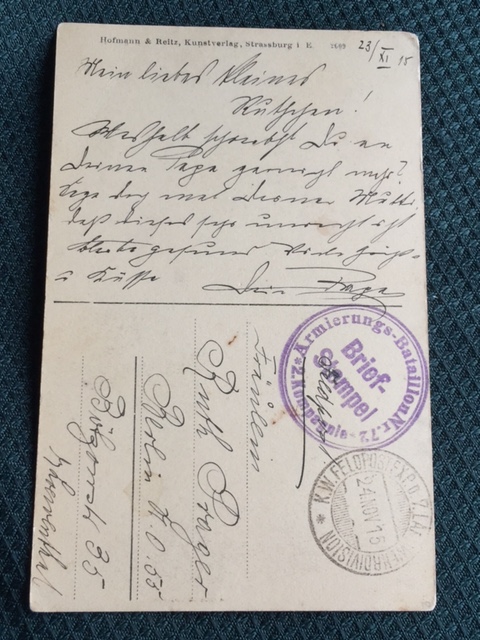 Hofmann & Reitz, Kunstverlag, Strassburg i E. 2689
23/XI 15
Mein liebes kleines
Ruthchen!
Weshalb schreibst Du an
Deinen Papa garnicht mehr?
Sage doch mal Deiner Mutti,
daß dieses sehr unrecht ist
bleibe gesund Viele Grüße
u Küsse Dein Papa
Feldpost
Fräulein
Ruth Prager
Berlin N.O. 55
35
2. Kompagnie * Armierungs-Bataillon Nr. 72 *
Brief-
Stempel
K.W. FELDPOSTEXPD. 7. (A)
24 NOV 15